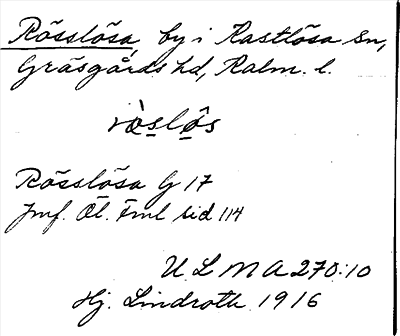 Rösslösa, by i Kastlösa sn,
Gräsgårds hd, Kalm. l.
rò̱s̱lô̱s
Rösslösa G 17
Jmf. Öl. Fml sid 114
U L M A 270:10
Hj. Lindroth 1916